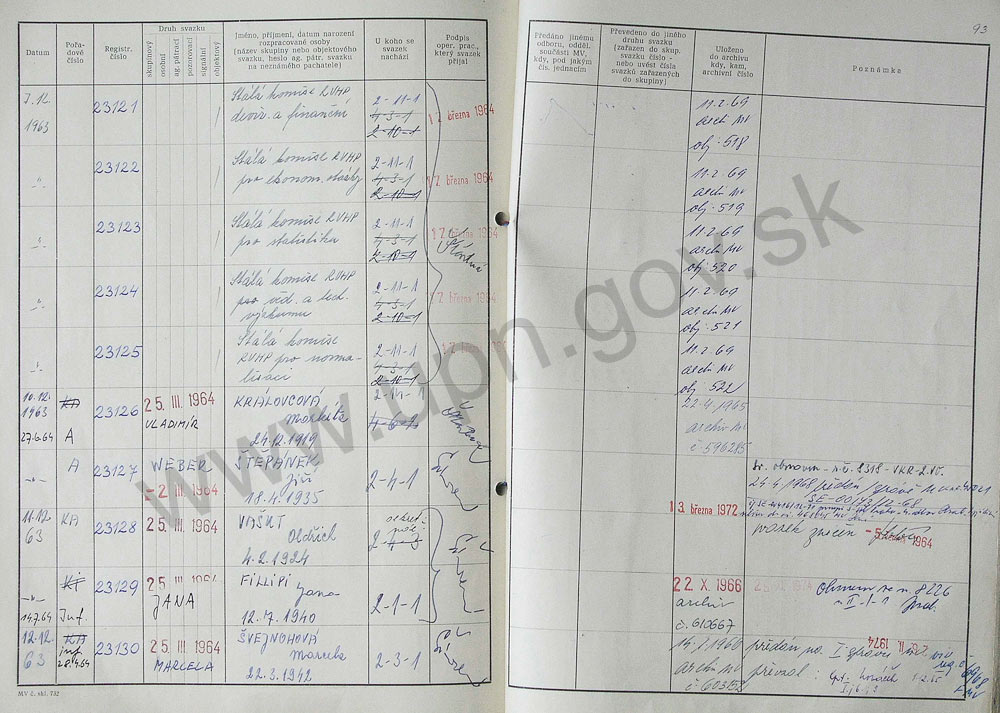 93
Datum
Pořadové číslo
Registr. číslo
Druh svazku
skupinový
osobní
ag. pátrací
pozorovací
signální
objektový
Jméno, příjmení, datum narození
rozpracované osoby
(název skupiny nebo objektového
svazku, heslo ag. pátr. svazku
na neznámého pachatele)
U koho se
svazek
nachází
Podpis
oper. prac.,
který svazek
přijal
Předáno jinému
odboru, odděl.
součásti MV,
kdy, pod jakým
čís. jednacím
Převedeno do jiného
druhu svazku
(zařazen do skup.
svazku číslo -
nebo uvést čísla
svazků zařazených
do skupiny)
Uloženo
do archivu
kdy, kam,
archivní číslo
Poznámka
7.12.
1963
23121
Stálá komise RVHP
deviz. a finanční
2-11-1
4-3-1
2-10-1
17. března 1964
11.2.69
arch MV
obj. 518
23122
Stálá komise RVHP
pro ekonom. otázky
2-11-1
4-3-1
2-10-1
17. března 1964
11.2.69
arch MV
obj. 519
23123
Stálá komise RVHP
pro statistiku
2-11-1
4-3-1
2-10-1
17. března 1964
11.2.69
arch MV
obj. 520
23124
Stálá komise RVHP
pro věd. a tech.
výzkumu
2-11-1
4-3-1
2-10-1
17. března 1964
11.2.69
arch MV
obj. 521
23125
Stálá komise
RVHP pro norma-
lisaci
2-11-1
4-3-1
2-10-1
17. března
11.2.69
arch MV
obj. 522
10.12.
1963
KA
27.6.64
A
23126
25. III. 1964
VLADIMÍR
KRÁLOVCOVÁ
Markéta
24.12.1919
2-14-1
4-6-1
22.4.1965
archiv MV
č. 596285
A
23127
WEBER
-2. III. 1964
ŠTĚPÁNEK
Jiří
18.4.1935
2-4-1
13. března 1972
24.4.1968 předán
11.12.
63
KA
23128
25. III. 1964
VAŠUT
Oldřich
4.2.1924
2-4-3
svazek zničen
1964
KA
14.7.64
Inf.
23129
25. III. 1964
JANA
FILLIPI
Jana
12.7.1940
2-1-1
22. X. 1966
archiv
č. 610667
Obnoven sv. n. 8226
12.12.
63
KA
inf
28.4.64
23130
25. III. 1964
MARCELA
ŠVEJNOHOVÁ
Marcela
22.3.1942
2-3-1
arch MV
č. 603152
předán na I. správu
převzal:
MV č. skl. 732
www.upn.gov.sk